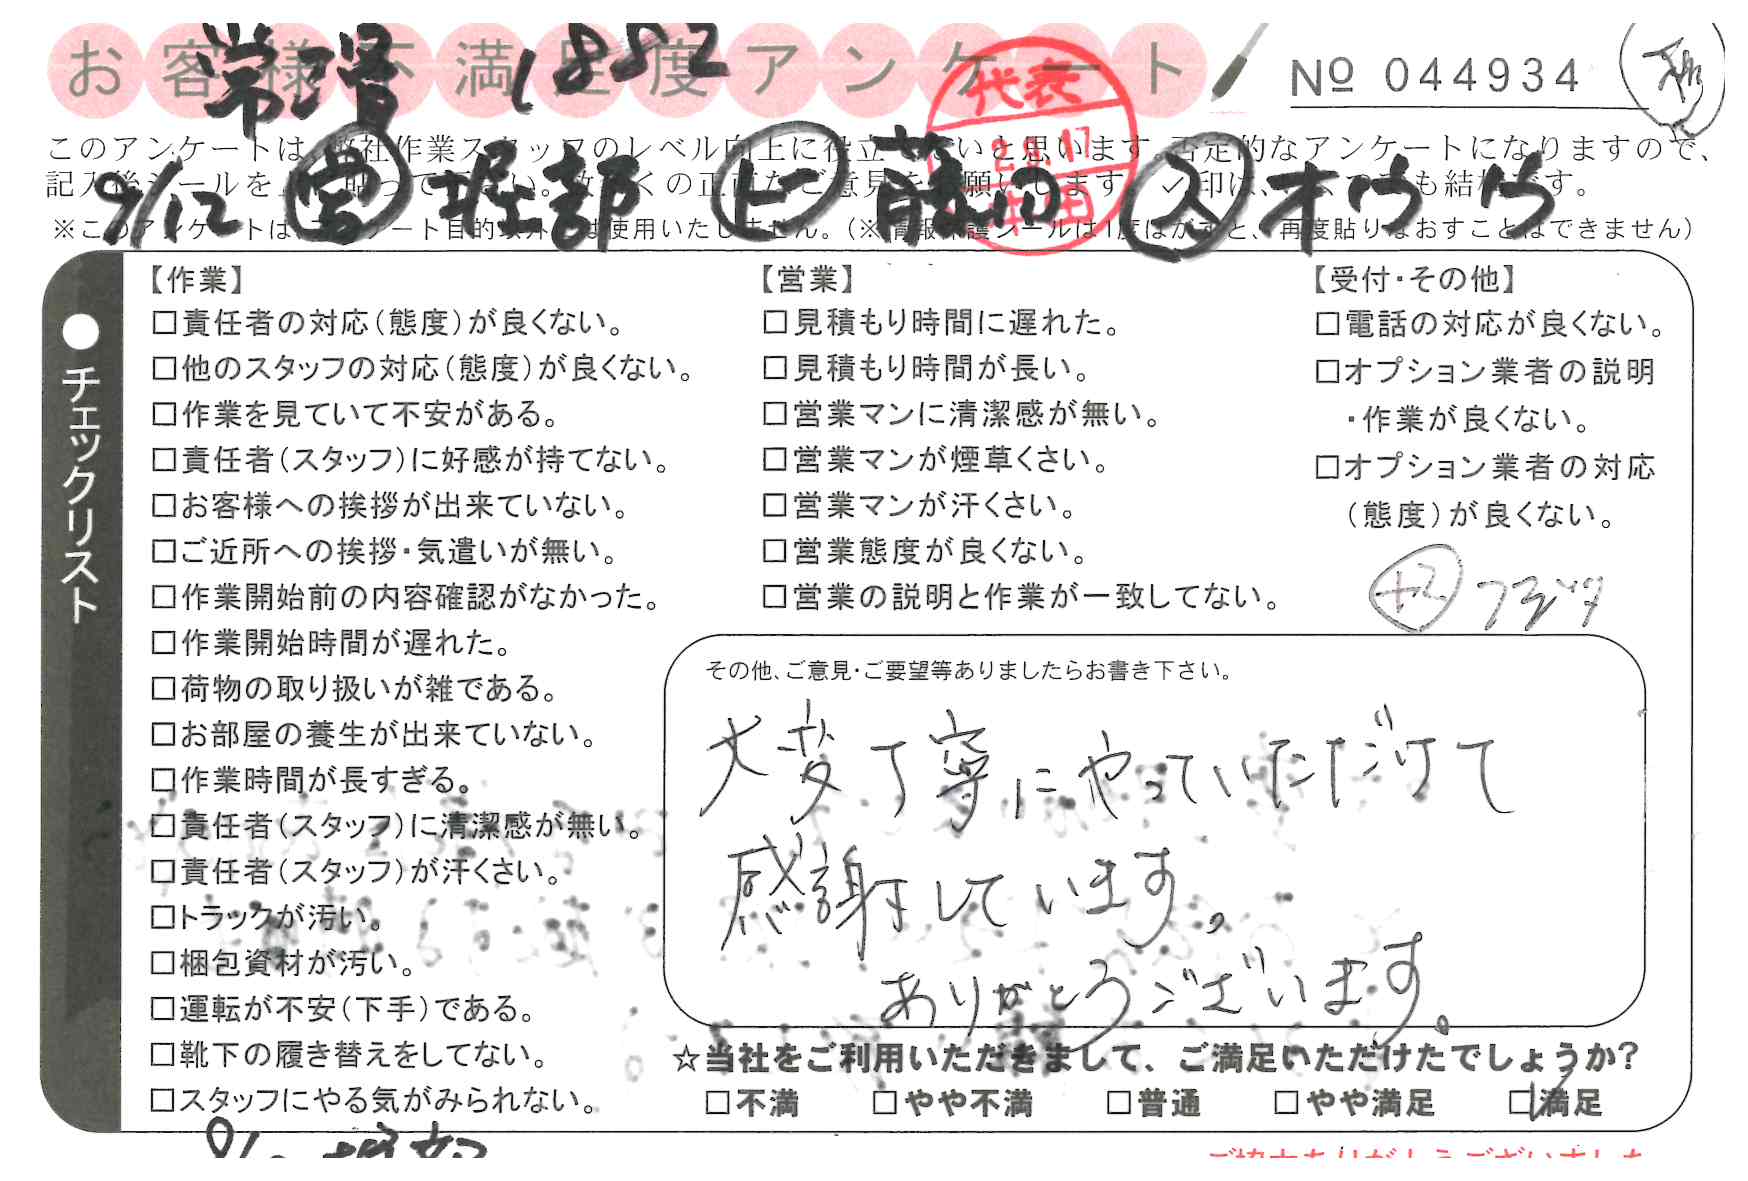 お客様不満足度アンケート
常習 1882
No 044934
代表
このアンケートは、弊社作業スタッフのレベル向上に役立てたいと思います。否定的なアンケートになりますので、
記入後シールを
の正直なご意見をお願いします。✓印は、いくつでも結構です。
※このアンケートは、アンケート目的以外には使用いたしません。(※情報保護シールは1度はがすと、再度貼りなおすことはできません)
9/12 営 堀部 ㊤ 藤田 ス オウウ
●チェックリスト
【作業】
□責任者の対応(態度)が良くない。
□他のスタッフの対応(態度)が良くない。
□作業を見ていて不安がある。
□責任者(スタッフ)に好感が持てない。
□お客様への挨拶が出来ていない。
□ご近所への挨拶・気遣いが無い。
□作業開始前の内容確認がなかった。
□作業開始時間が遅れた。
□荷物の取り扱いが雑である。
□お部屋の養生が出来ていない。
□作業時間が長すぎる。
□責任者(スタッフ)に清潔感が無い。
□責任者(スタッフ)が汗くさい。
□トラックが汚い。
□梱包資材が汚い。
□運転が不安(下手)である。
□靴下の履き替えをしてない。
□スタッフにやる気がみられない。
【営業】
□見積もり時間に遅れた。
□見積もり時間が長い。
□営業マンに清潔感が無い。
□営業マンが煙草くさい。
□営業マンが汗くさい。
□営業態度が良くない。
□営業の説明と作業が一致してない。
【受付・その他】
□電話の対応が良くない。
□オプション業者の説明
・作業が良くない。
□オプション業者の対応
(態度)が良くない。
+2
その他、ご意見・ご要望等ありましたらお書き下さい。
大変丁寧にやっていただけて
感謝しています。
ありがとうございます。
☆当社をご利用いただきまして、ご満足いただけたでしょうか?
□不満 □やや不満 □普通 □やや満足 ☑満足
ご協力ありがとうございました